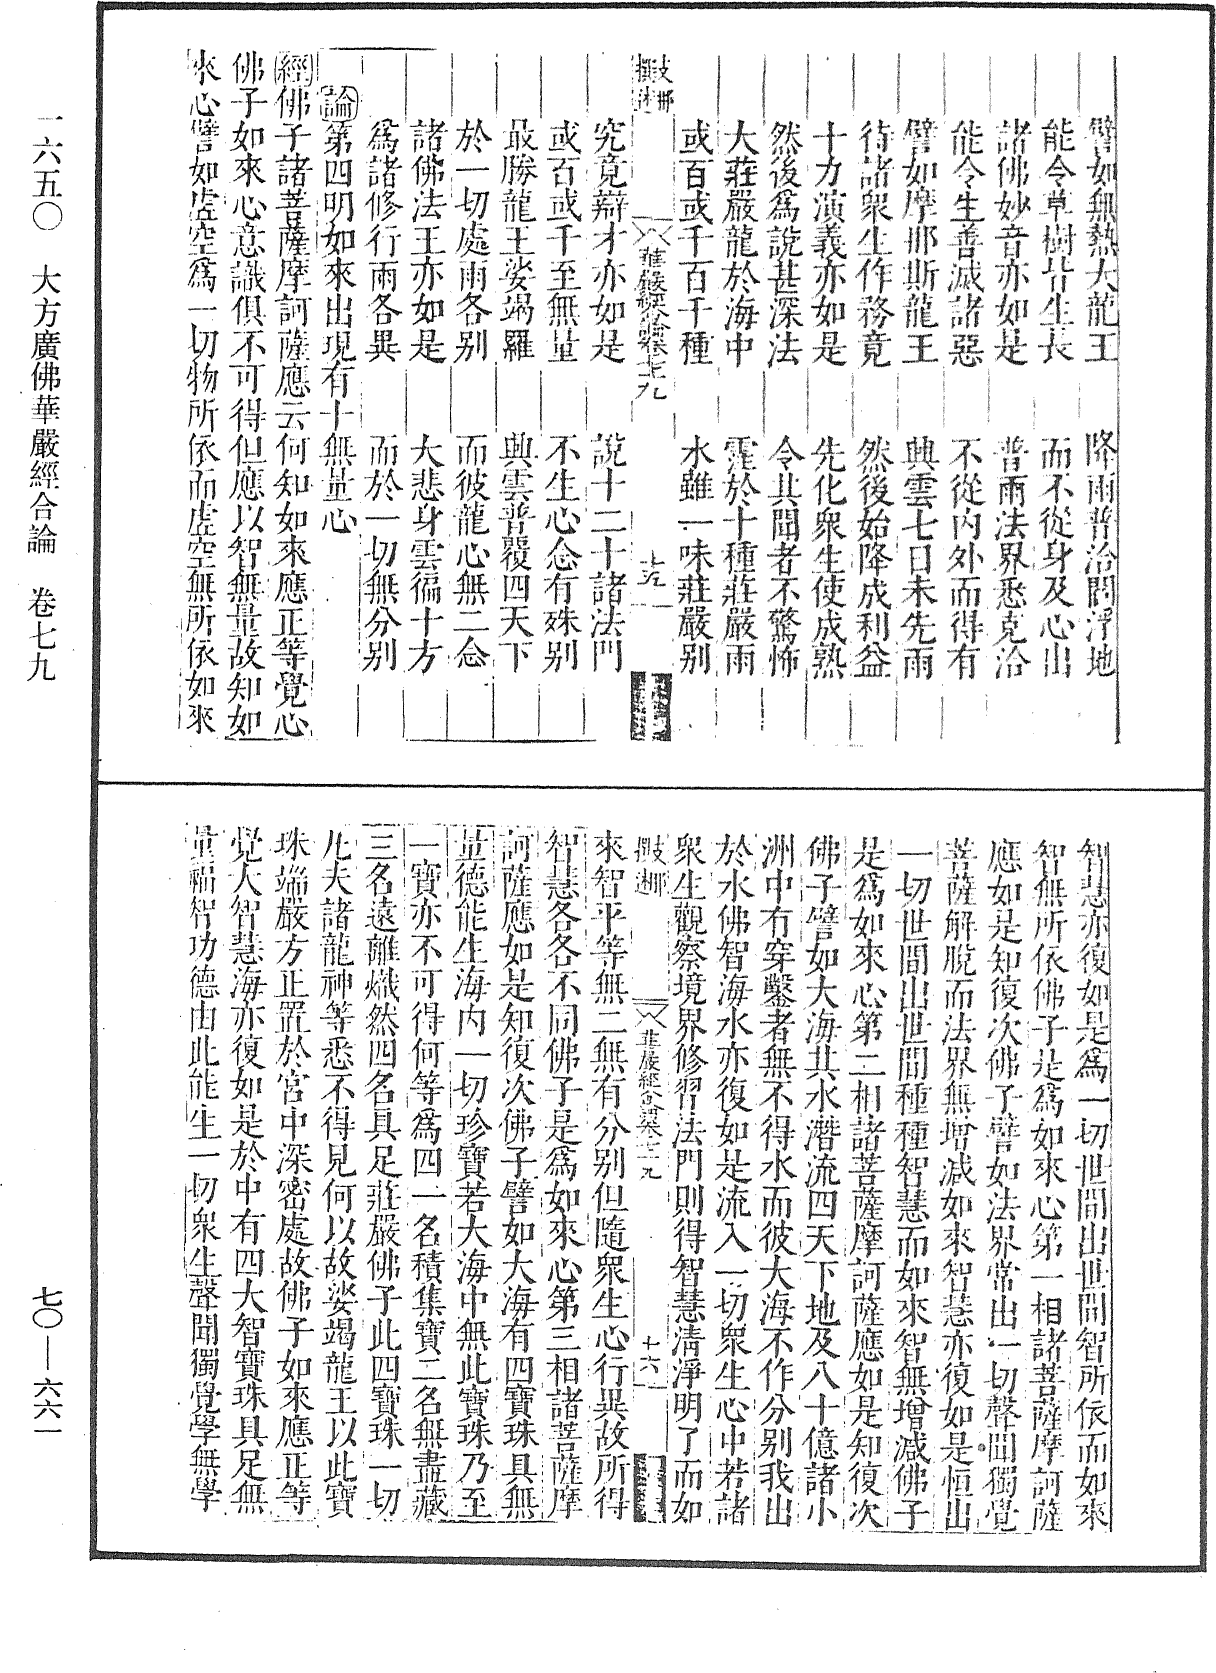 一六五〇　大方廣佛華嚴經合論　卷七九
七〇—六六一
譬如無熱大龍王　降雨普洽閻浮地
能令草樹皆生長　而不從身及心出
諸佛妙音亦如是　普雨法界悉充洽
能令生善滅諸惡　不從內外而得有
譬如摩那斯龍王　興雲七日未先雨
待諸眾生作務竟　然後始降成利益
十力演義亦如是　先化眾生使成熟
然後為說甚深法　令其聞者不驚怖
大莊嚴龍於海中　霔於十種莊嚴雨
或百或千百千種　水雖一味莊嚴別
支那撰述　華嚴經合論卷七十九　十五
究竟辯才亦如是　說十二十諸法門
或百或千至無量　不生心念有殊別
最勝龍王娑竭羅　興雲普覆四天下
於一切處雨各別　而彼龍心無二念
諸佛法王亦如是　大悲身雲徧十方
為諸修行雨各異　而於一切無分別
論第四明如來出現有十無量心
經佛子諸菩薩摩訶薩應云何知如來應正等覺心
佛子如來心意識俱不可得但應以智無量故知如
來心譬如虛空為一切物所依而虛空無所依如來
智慧亦復如是為一切世間出世間智所依而如來
智無所依佛子是為如來心第一相諸菩薩摩訶薩
應如是知復次佛子譬如法界常出一切聲聞獨覺
菩薩解脫而法界無增減如來智慧亦復如是恒出
一切世間出世間種種智慧而如來智無增減佛子
是為如來心第二相諸菩薩摩訶薩應如是知復次
佛子譬如大海其水潛流四天下地及八十億諸小
洲中有穿鑿者無不得水而彼大海不作分別我出
於水佛智海水亦復如是流入一切眾生心中若諸
眾生觀察境界修習法門則得智慧清淨明了而如
支那撰述　華嚴經合論卷七十九　十六
來智平等無二無有分別但隨眾生心行異故所得
智慧各各不同佛子是為如來心第三相諸菩薩摩
訶薩應如是知復次佛子譬如大海有四寶珠具無
量德能生海內一切珍寶若大海中無此寶珠乃至
一寶亦不可得何等為四一名積集寶二名無盡藏
三名遠離熾然四名具足莊嚴佛子此四寶珠一切
凡夫諸龍神等悉不得見何以故娑竭龍王以此寶
珠端嚴方正置於宮中深密處故佛子如來應正等
覺大智慧海亦復如是於中有四大智寶珠具足無
量福智功德由此能生一切眾生聲聞獨覺學無學